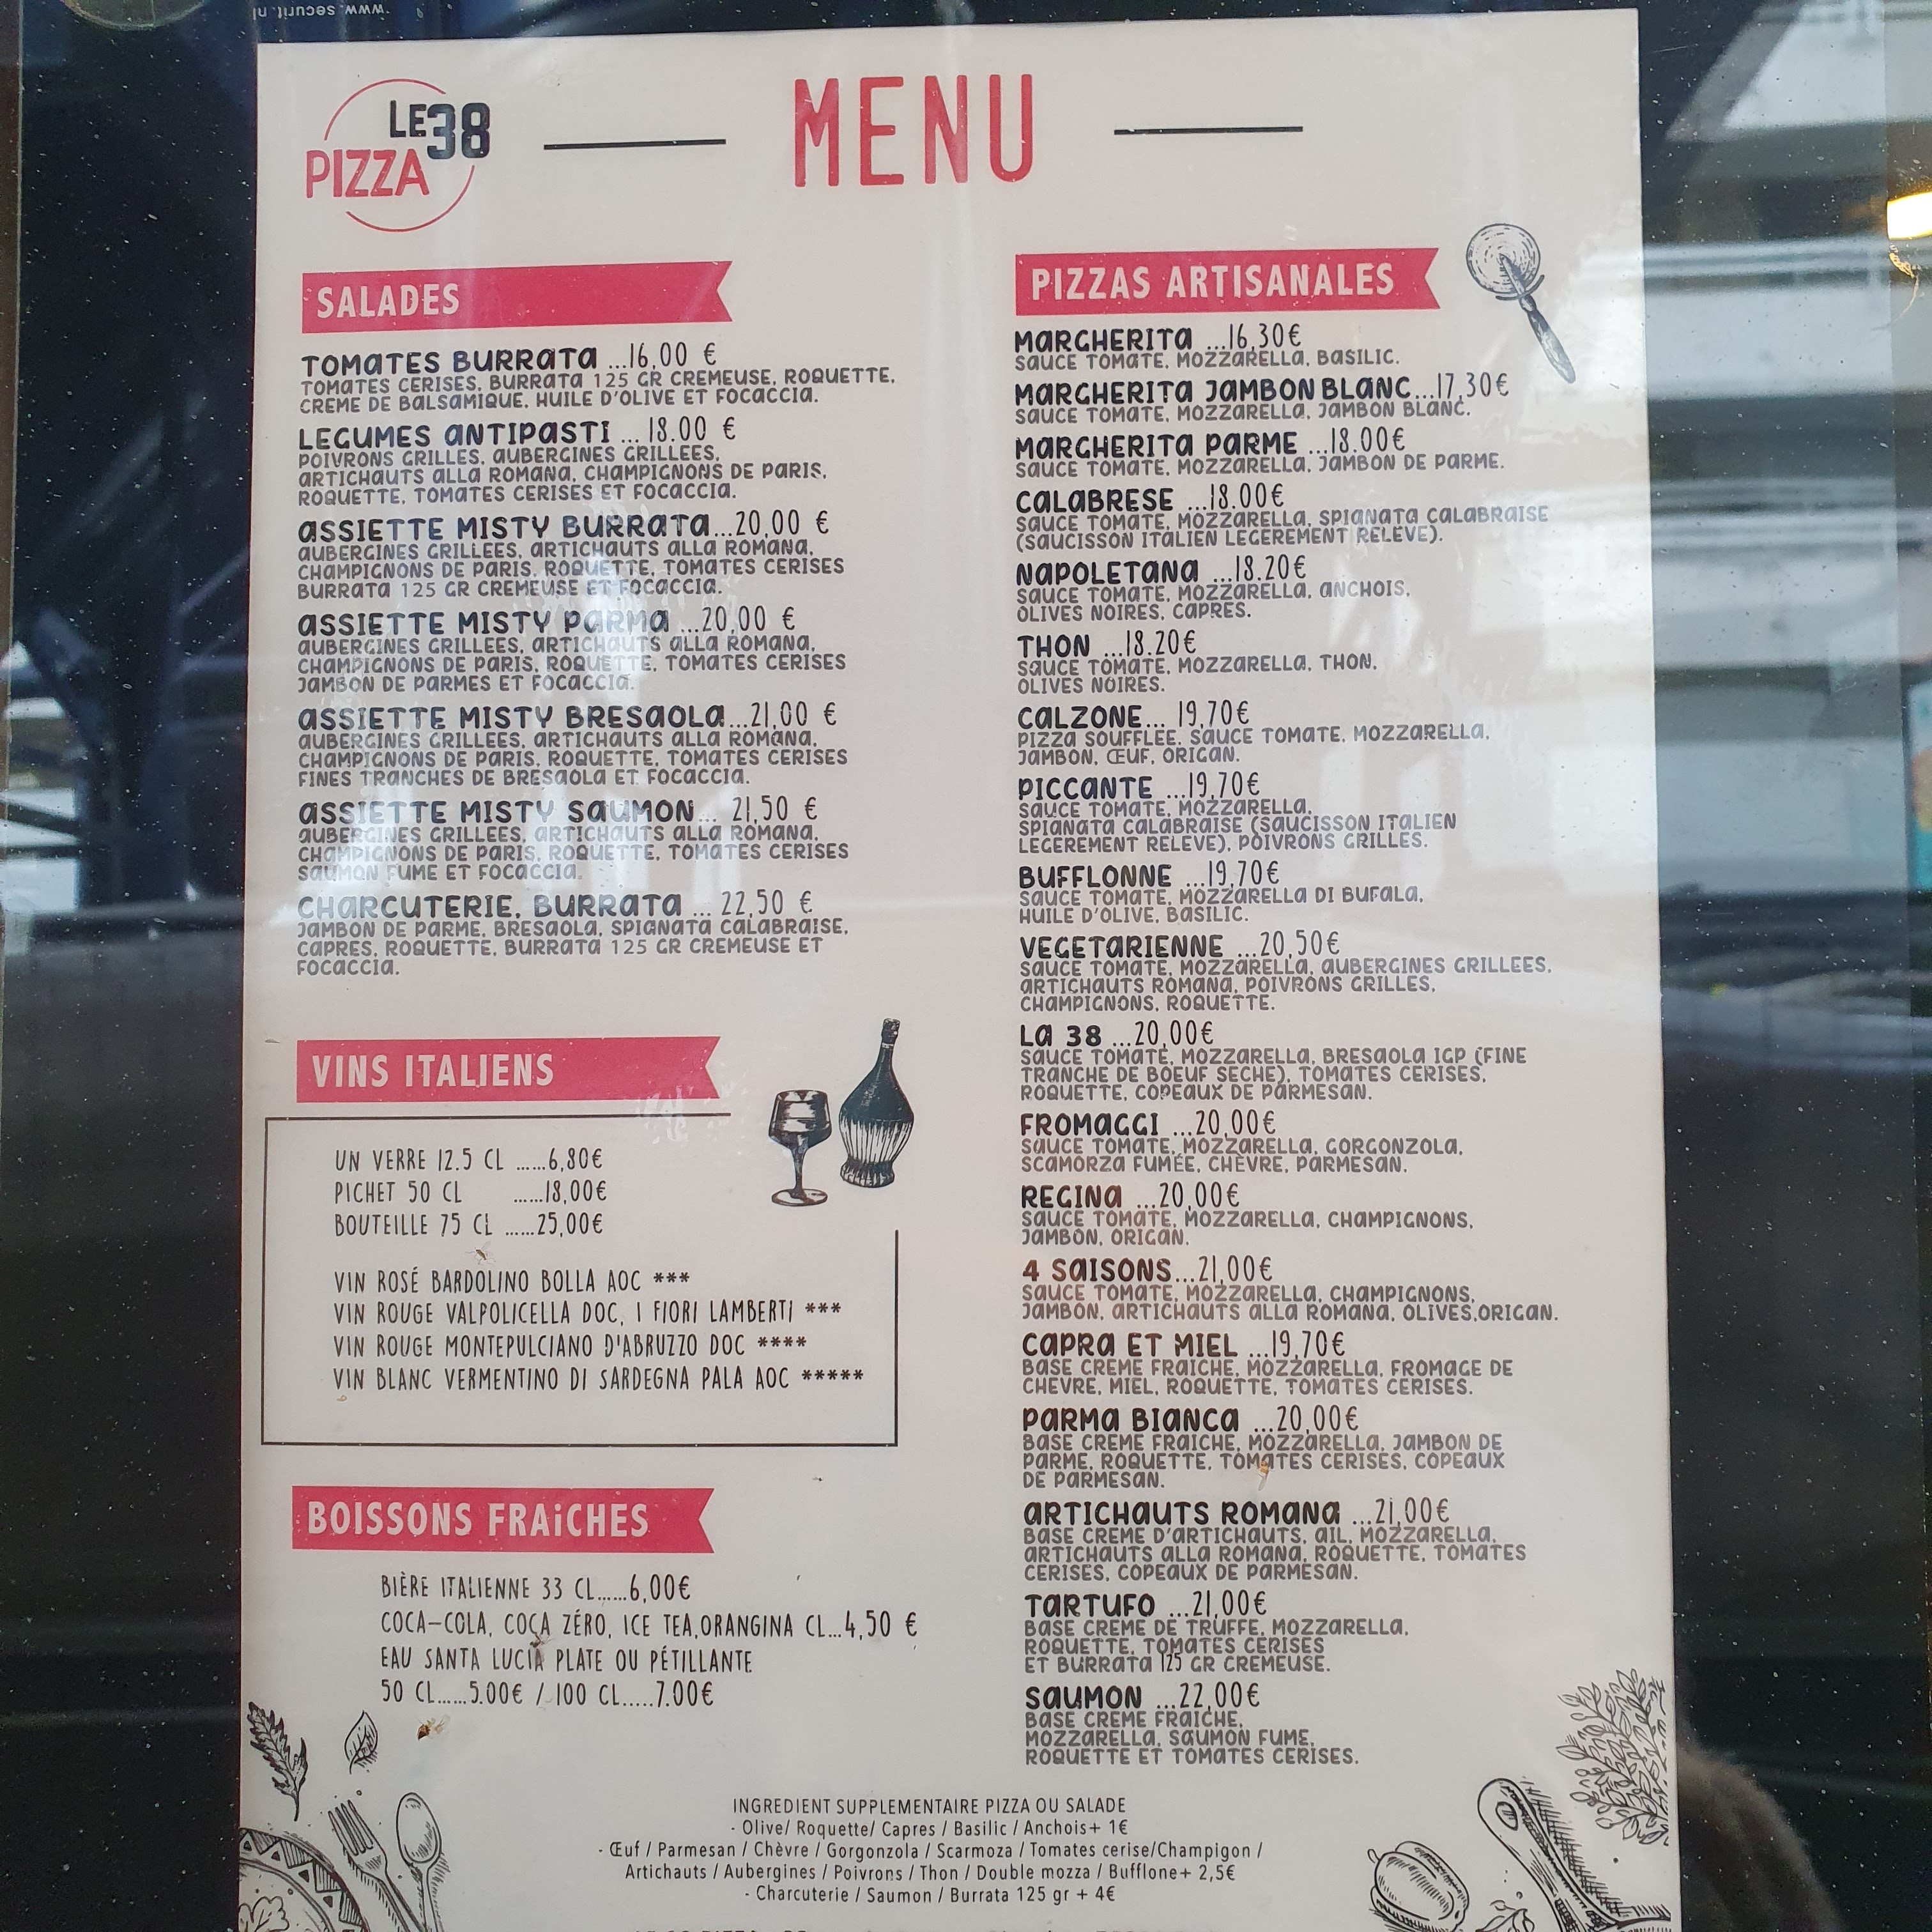 www.securit.nl
LE 38
PIZZA
MENU
SALADES
TOMATES BURRATA ...16,00 €
TOMATES CERISES, BURRATA 125 GR CREMEUSE, ROQUETTE,
CREME DE BALSAMIQUE, HUILE D'OLIVE ET FOCACCIA.
LEGUMES ANTIPASTI ... 18.00 €
POIVRONS GRILLES, AUBERGINES GRILLEES,
ARTICHAUTS ALLA ROMANA, CHAMPIGNONS DE PARIS,
ROQUETTE, TOMATES CERISES ET FOCACCIA.
ASSIETTE MISTY BURRATA...20,00 €
AUBERGINES GRILLEES, ARTICHAUTS ALLA ROMANA,
CHAMPIGNONS DE PARIS, ROQUETTE, TOMATES CERISES
BURRATA 125 GR CREMEUSE ET FOCACCIA.
ASSIETTE MISTY PARMA ...20,00 €
AUBERGINES GRILLEES, ARTICHAUTS ALLA ROMANA,
CHAMPIGNONS DE PARIS, ROQUETTE, TOMATES CERISES
JAMBON DE PARMES ET FOCACCIA.
ASSIETTE MISTY BRESAOLA...21,00 €
AUBERGINES GRILLEES, ARTICHAUTS ALLA ROMANA,
CHAMPIGNONS DE PARIS, ROQUETTE, TOMATES CERISES
FINES TRANCHES DE BRESAOLA ET FOCACCIA.
ASSIETTE MISTY SAUMON... 21,50 €
AUBERGINES GRILLEES, ARTICHAUTS ALLA ROMANA,
CHAMPIGNONS DE PARIS, ROQUETTE, TOMATES CERISES
SAUMON FUME ET FOCACCIA.
CHARCUTERIE, BURRATA ... 22,50 €
JAMBON DE PARME, BRESAOLA, SPIANATA CALABRAISE,
CAPRES, ROQUETTE, BURRATA 125 GR CREMEUSE ET
FOCACCIA.
VINS ITALIENS
UN VERRE 12.5 CL ......6,80€
PICHET 50 CL ......18,00€
BOUTEILLE 75 CL ......25,00€
VIN ROSÉ BARDOLINO BOLLA AOC ***
VIN ROUGE VALPOLICELLA DOC, I FIORI LAMBERTI ***
VIN ROUGE MONTEPULCIANO D'ABRUZZO DOC ****
VIN BLANC VERMENTINO DI SARDEGNA PALA AOC *****
BOISSONS FRAiCHES
BIÈRE ITALIENNE 33 CL......6,00€
COCA-COLA, COCA ZÉRO, ICE TEA,ORANGINA CL...4,50 €
EAU SANTA LUCIA PLATE OU PÉTILLANTE
50 CL......5.00€ / 100 CL.....7.00€
PIZZAS ARTISANALES
MARGHERITA ...16,30€
SAUCE TOMATE, MOZZARELLA, BASILIC.
MARGHERITA JAMBON BLANC...17,30€
SAUCE TOMATE, MOZZARELLA, JAMBON BLANC.
MARGHERITA PARME ...18.00€
SAUCE TOMATE, MOZZARELLA, JAMBON DE PARME.
CALABRESE ...18.00€
SAUCE TOMATE, MOZZARELLA, SPIANATA CALABRAISE
(SAUCISSON ITALIEN LEGEREMENT RELEVE).
NAPOLETANA ...18.20€
SAUCE TOMATE, MOZZARELLA, ANCHOIS,
OLIVES NOIRES, CAPRES.
THON ...18.20€
SAUCE TOMATE, MOZZARELLA, THON,
OLIVES NOIRES.
CALZONE... 19,70€
PIZZA SOUFFLEE. SAUCE TOMATE, MOZZARELLA,
JAMBON, ŒUF, ORIGAN.
PICCANTE ...19,70€
SAUCE TOMATE, MOZZARELLA,
SPIANATA CALABRAISE (SAUCISSON ITALIEN
LEGEREMENT RELEVE), POIVRONS GRILLES.
BUFFLONNE ...19,70€
SAUCE TOMATE, MOZZARELLA DI BUFALA,
HUILE D'OLIVE, BASILIC.
VEGETARIENNE ...20,50€
SAUCE TOMATE, MOZZARELLA, AUBERGINES GRILLEES,
ARTICHAUTS ROMANA, POIVRONS GRILLES,
CHAMPIGNONS, ROQUETTE.
LA 38 ...20,00€
SAUCE TOMATE, MOZZARELLA, BRESAOLA IGP (FINE
TRANCHE DE BOEUF SECHE), TOMATES CERISES,
ROQUETTE, COPEAUX DE PARMESAN.
FROMAGGI ...20,00€
SAUCE TOMATE, MOZZARELLA, GORGONZOLA,
SCAMORZA FUMÉE, CHÈVRE, PARMESAN.
REGINA ...20,00€
SAUCE TOMATE, MOZZARELLA, CHAMPIGNONS,
JAMBON, ORIGAN.
4 SAISONS...21,00€
SAUCE TOMATE, MOZZARELLA, CHAMPIGNONS,
JAMBON, ARTICHAUTS ALLA ROMANA, OLIVES,ORIGAN.
CAPRA ET MIEL ...19,70€
BASE CREME FRAICHE, MOZZARELLA, FROMAGE DE
CHEVRE, MIEL, ROQUETTE, TOMATES CERISES.
PARMA BIANCA ...20,00€
BASE CREME FRAICHE, MOZZARELLA, JAMBON DE
PARME, ROQUETTE, TOMATES CERISES, COPEAUX
DE PARMESAN.
ARTICHAUTS ROMANA ...21,00€
BASE CREME D'ARTICHAUTS, AIL, MOZZARELLA,
ARTICHAUTS ALLA ROMANA, ROQUETTE, TOMATES
CERISES, COPEAUX DE PARMESAN.
TARTUFO ...21,00€
BASE CREME DE TRUFFE, MOZZARELLA,
ROQUETTE, TOMATES CERISES
ET BURRATA 125 GR CREMEUSE.
SAUMON ...22,00€
BASE CREME FRAICHE,
MOZZARELLA, SAUMON FUME,
ROQUETTE ET TOMATES CERISES.
INGREDIENT SUPPLEMENTAIRE PIZZA OU SALADE
- Olive/ Roquette/ Capres / Basilic / Anchois+ 1€
- Œuf / Parmesan / Chèvre / Gorgonzola / Scarmoza / Tomates cerise/Champigon /
Artichauts / Aubergines / Poivrons / Thon / Double mozza / Bufflone+ 2,5€
- Charcuterie / Saumon / Burrata 125 gr + 4€